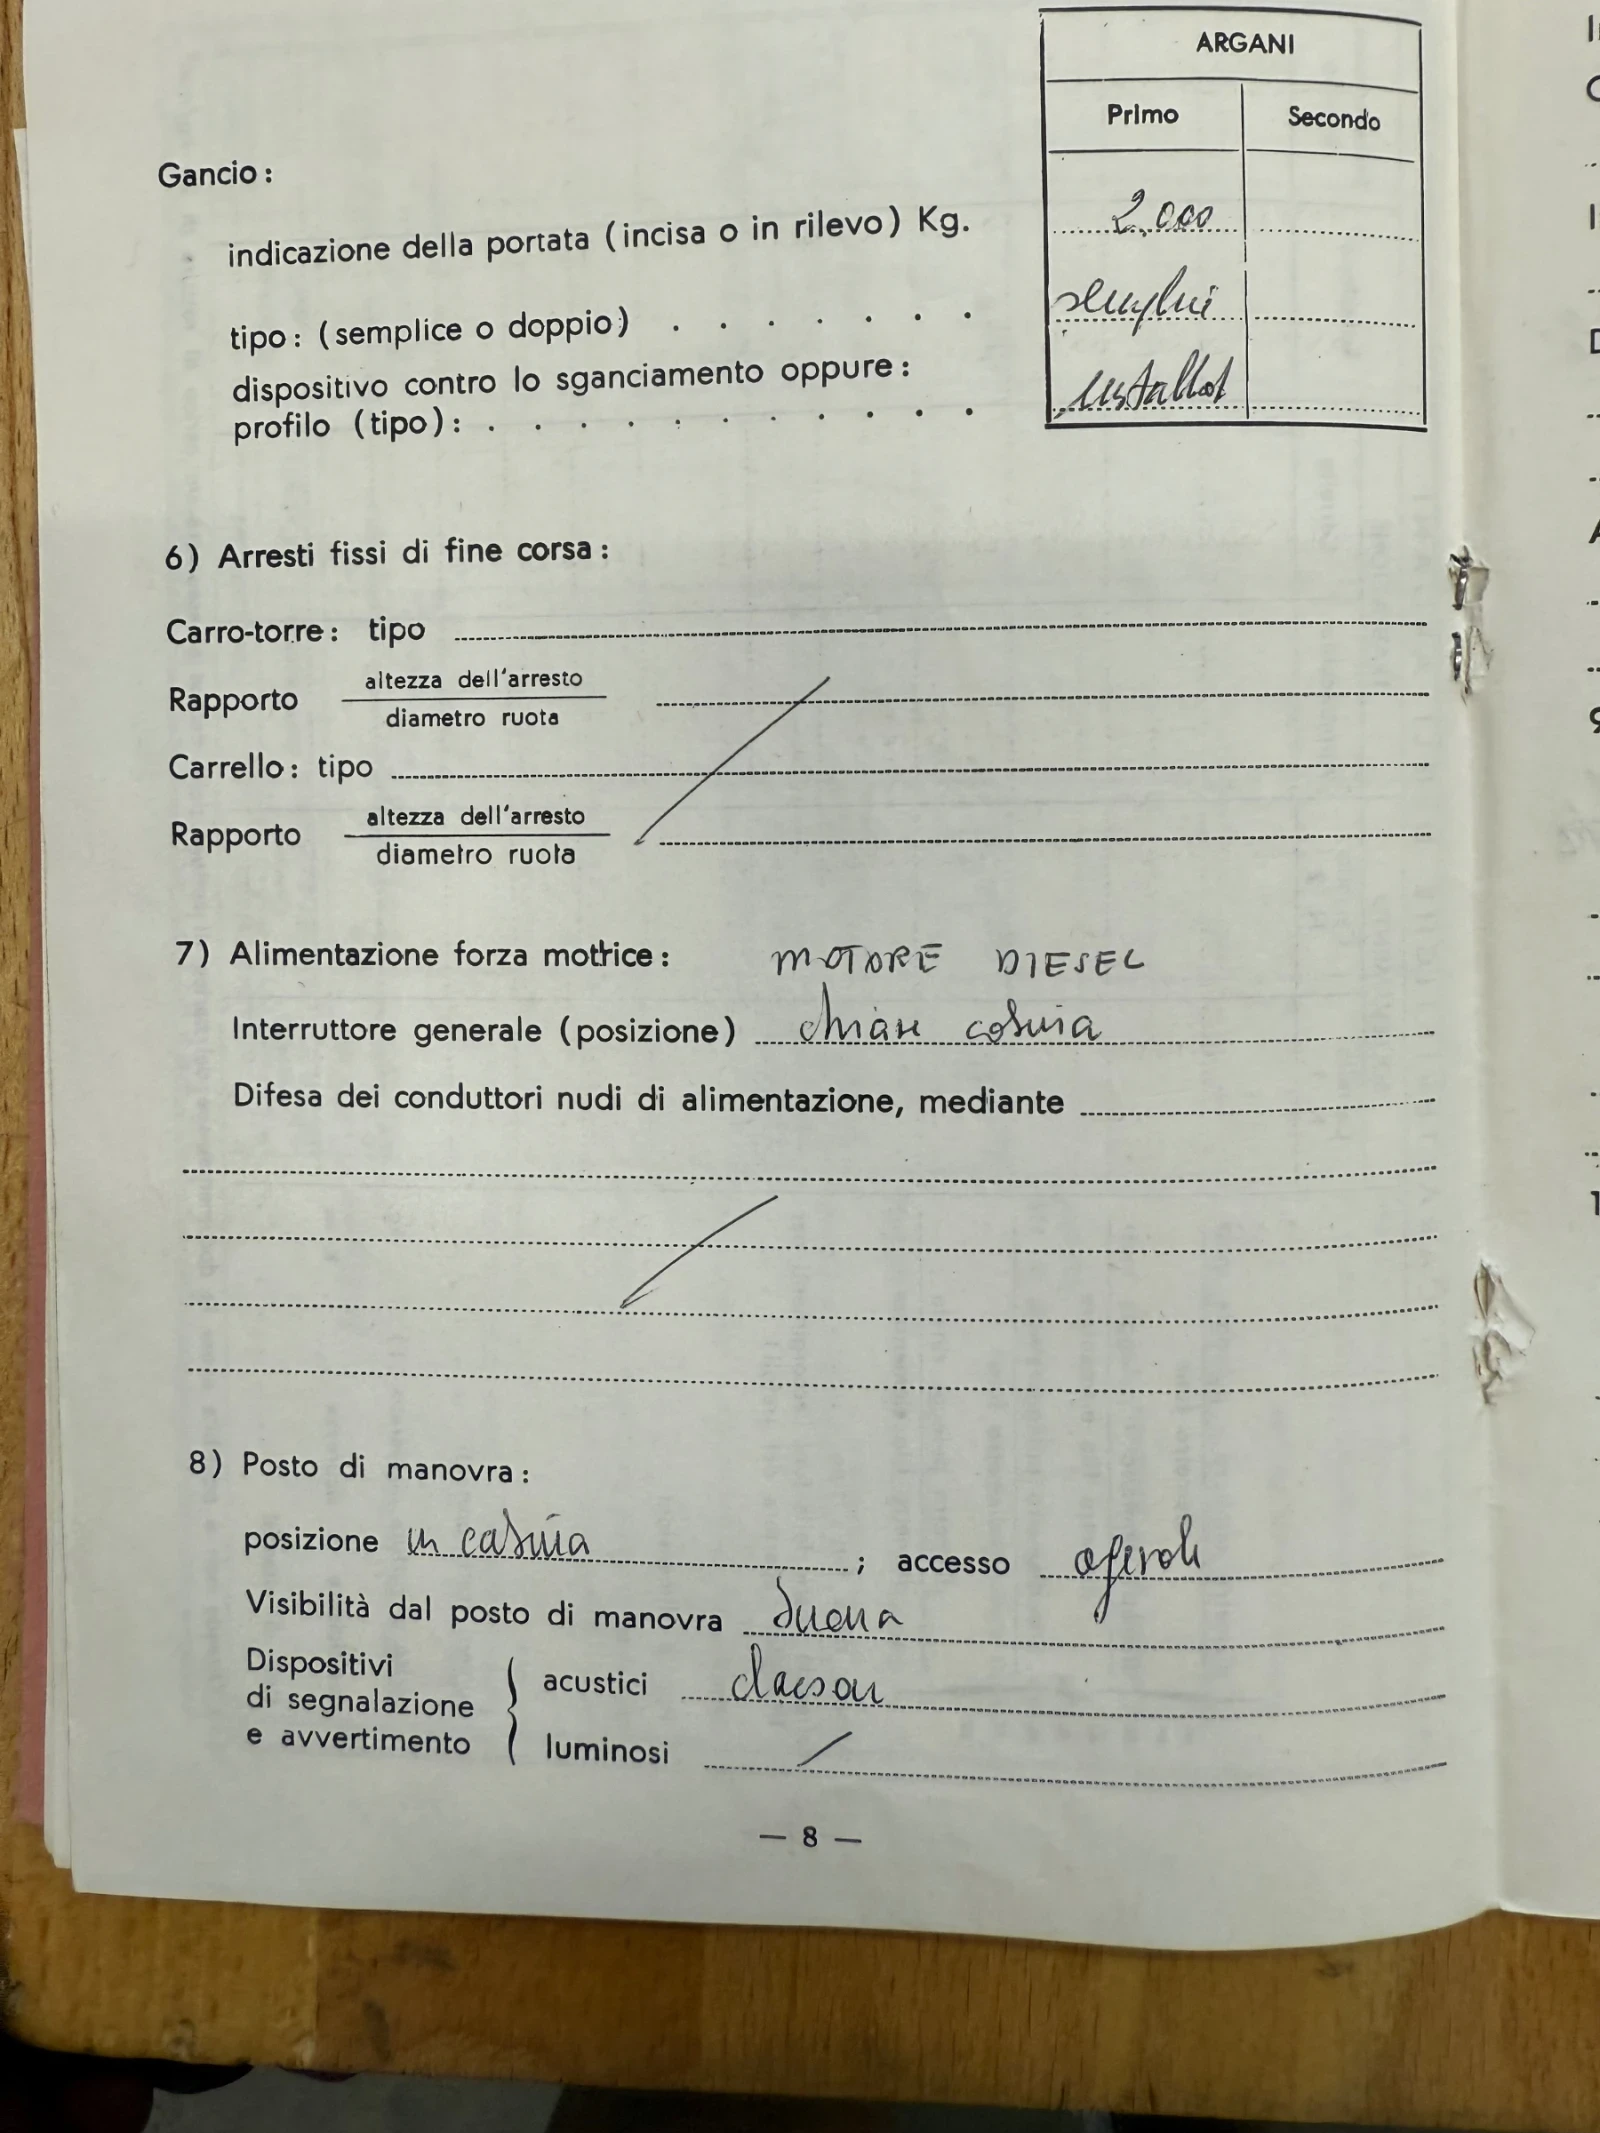 ARGANI
Primo Secondo
Gancio:
indicazione della portata (incisa o in rilevo) Kg. 2.000
tipo: (semplice o doppio) . . . . . . . semplice
dispositivo contro lo sganciamento oppure:
profilo (tipo): . . . . . . . . . . .
6) Arresti fissi di fine corsa:
Carro-torre: tipo
Rapporto altezza dell'arresto
diametro ruota
Carrello: tipo
Rapporto altezza dell'arresto
diametro ruota
7) Alimentazione forza motrice: MOTORE DIESEL
Interruttore generale (posizione) chiave cabina
Difesa dei conduttori nudi di alimentazione, mediante
8) Posto di manovra:
posizione in cabina ; accesso agevole
Visibilità dal posto di manovra buona
Dispositivi
di segnalazione
e avvertimento
acustici clacson
luminosi /
— 8 —